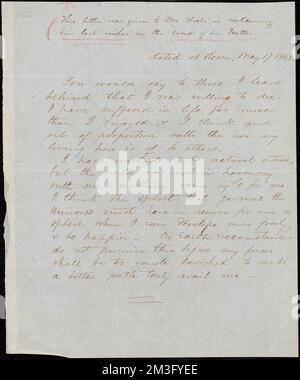 This letter was given to Mr Hicks as containing
her last wishes in the event of her Death.
dated at Rome, May 17 184
You would say to those I leave
behind that I was willing to die.
I have suffered in life far more
than I enjoyed, & I think quite
out of proportion with the use my
living here is of to others.
I have wished to be natural & true,
but the world was not in harmony
with me nothing came right for me.
I think the spirit that governs the
Universe must have in reserve for me a
sphere where I can develope more freely,
& be happier on Earth circumstances
do not promise this before my forces
shall be too much lavished to make
a better path truly avail me
alamy
Image ID: 2M3FYEE
www.alamy.com